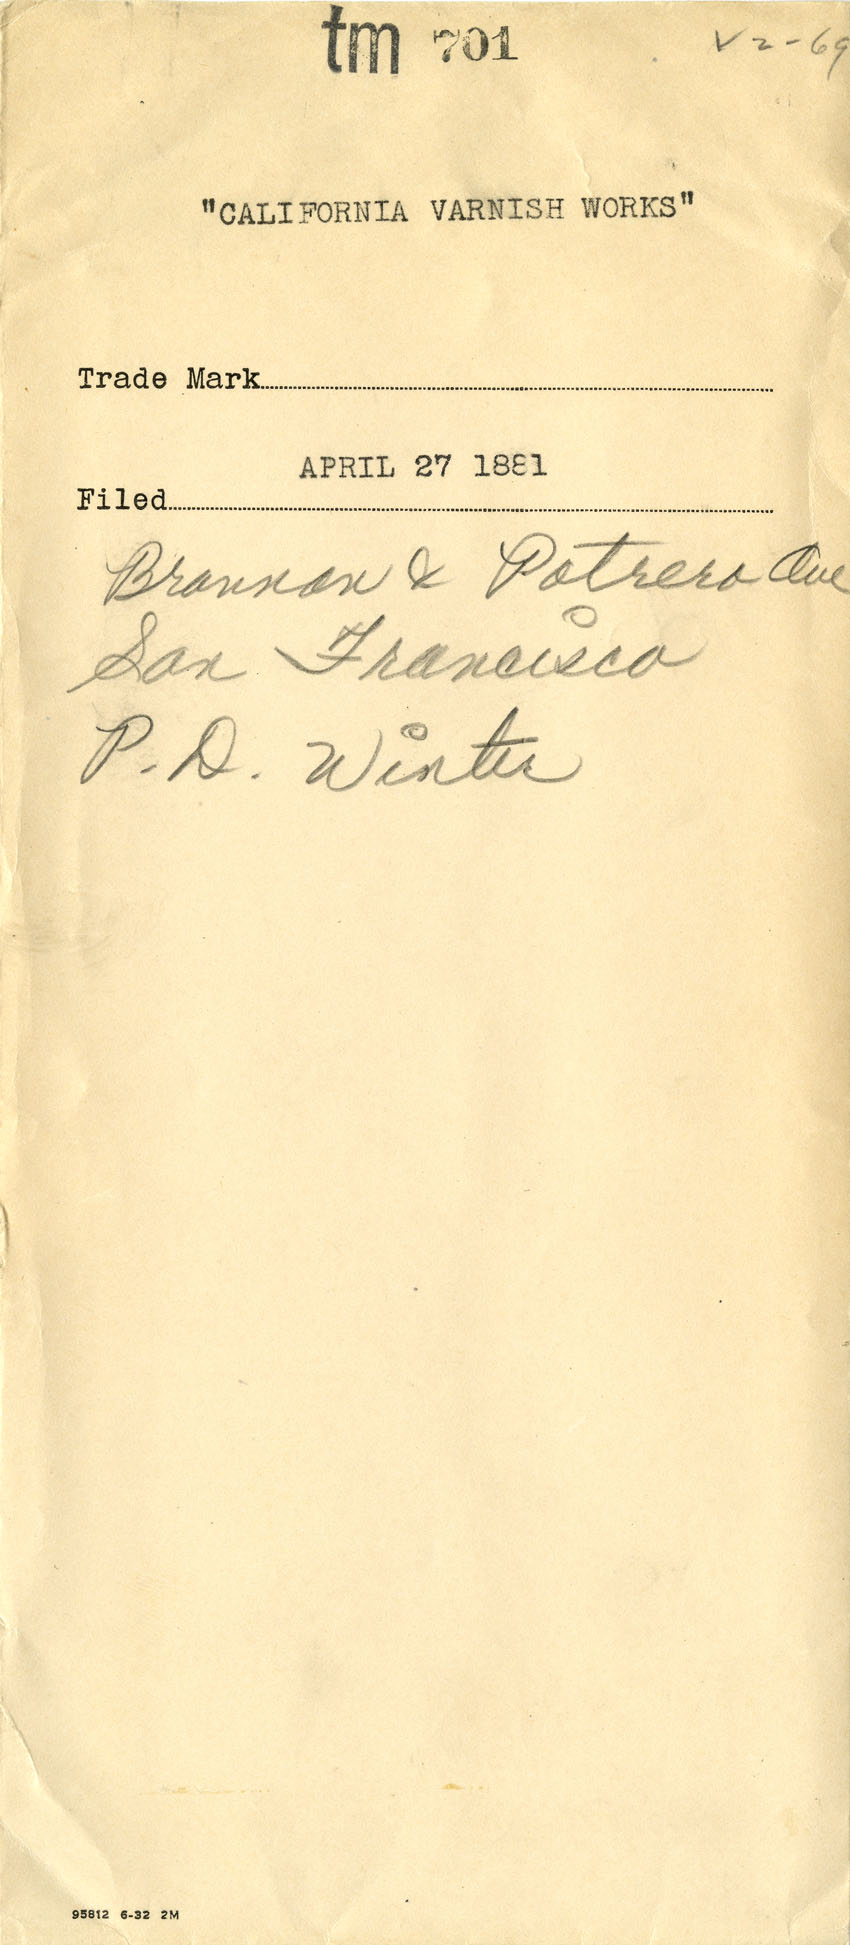 tm 701
V2-69
"CALIFORNIA VARNISH WORKS"
Trade Mark
APRIL 27 1881
Filed
Brannan & Potrero Ave
San Francisco
P. D. Winter
95812 6-32 2M